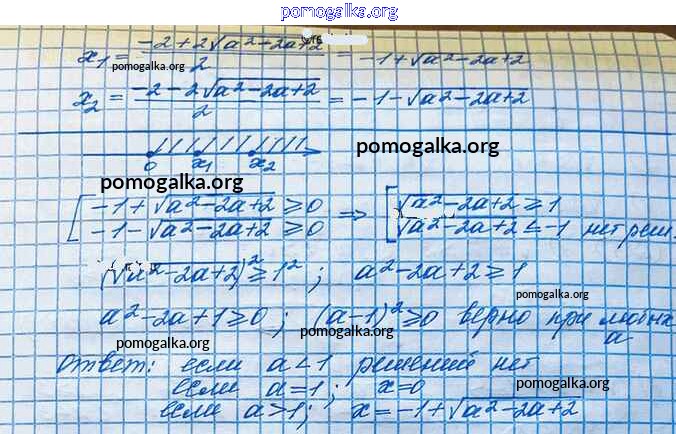 pomogalka.org
x₁ = (-2+2√(a²-2a+2))/2 = -1+√(a²-2a+2)
pomogalka.org
x₂ = (-2-2√(a²-2a+2))/2 = -1-√(a²-2a+2)
0 x₁ x₂
pomogalka.org
pomogalka.org
[ -1+√(a²-2a+2) ≥ 0 ⇒ [ √(a²-2a+2) ≥ 1
-1-√(a²-2a+2) ≥ 0 √(a²-2a+2) ≤ -1 нет реш.
(√(a²-2a+2))² ≥ 1² ; a²-2a+2 ≥ 1
pomogalka.org
a²-2a+1 ≥ 0 ; (a-1)² ≥ 0 верно при любых a
pomogalka.org
pomogalka.org
ответ: если a < 1 решений нет
если a = 1 ; x = 0
pomogalka.org
если a > 1 ; x = -1+√(a²-2a+2)